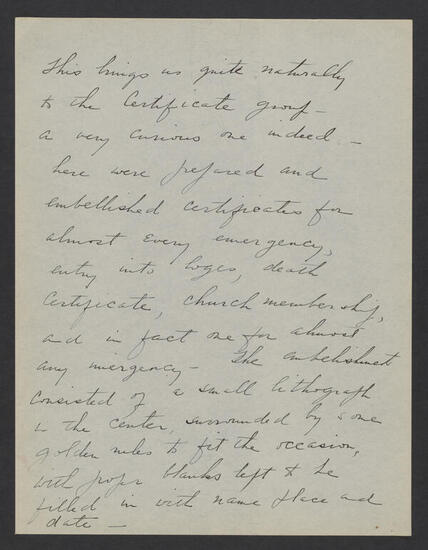 This brings us quite naturally
to the Certificate group -
a very curious one indeed -
here were prepared and
embellished certificates for
almost every emergency,
entry into loges, death
certificate, church membership,
and in fact one for almost
any imergency - The embelishment
consisted of a small lithograph
in the center, surrounded by some
golden rules to fit the occasion,
with proper blanks left to be
filled in with name place and
date -